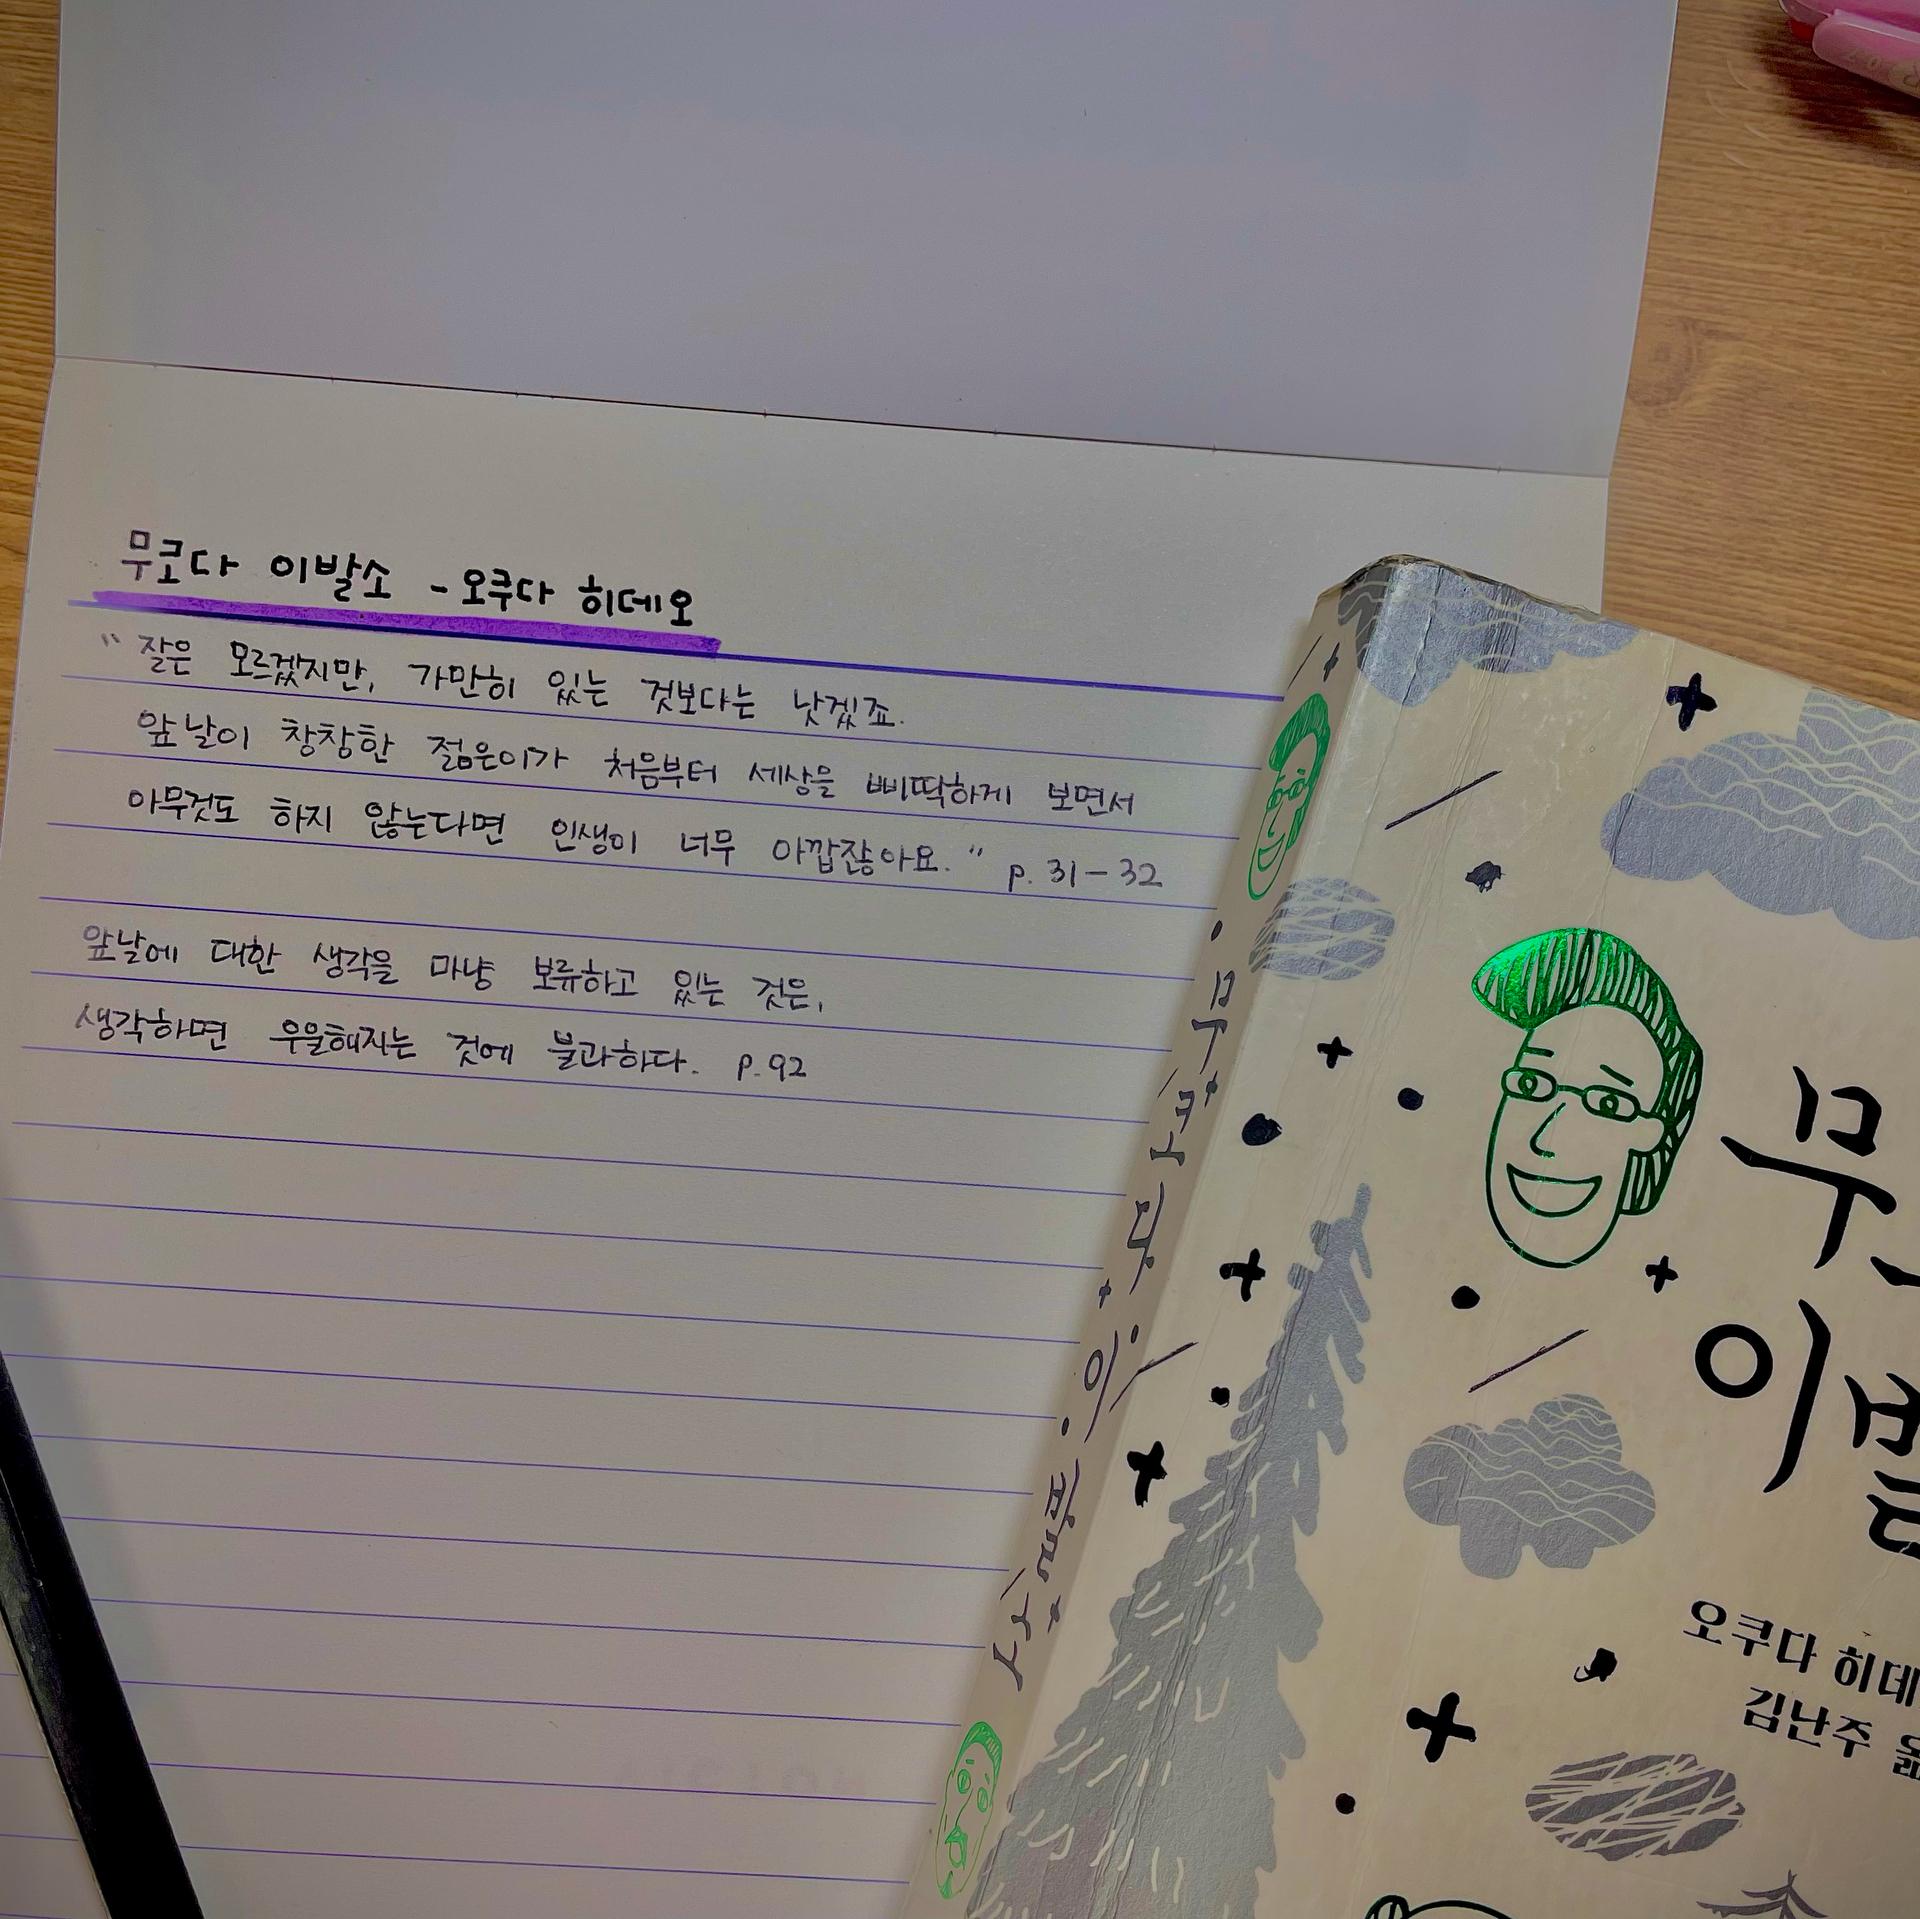 무코다 이발소 - 오쿠다 히데오
"잘은 모르겠지만, 가만히 있는 것보다는 낫겠죠.
앞날이 창창한 젊은이가 처음부터 세상을 삐딱하게 보면서
아무것도 하지 않는다면 인생이 너무 아깝잖아요." p. 31-32
앞날에 대한 생각을 마냥 보류하고 있는 것은,
생각하면 우울해지는 것에 불과하다. p.92
무코다 이발소
무
이발
오쿠다 히데
김난주 옮